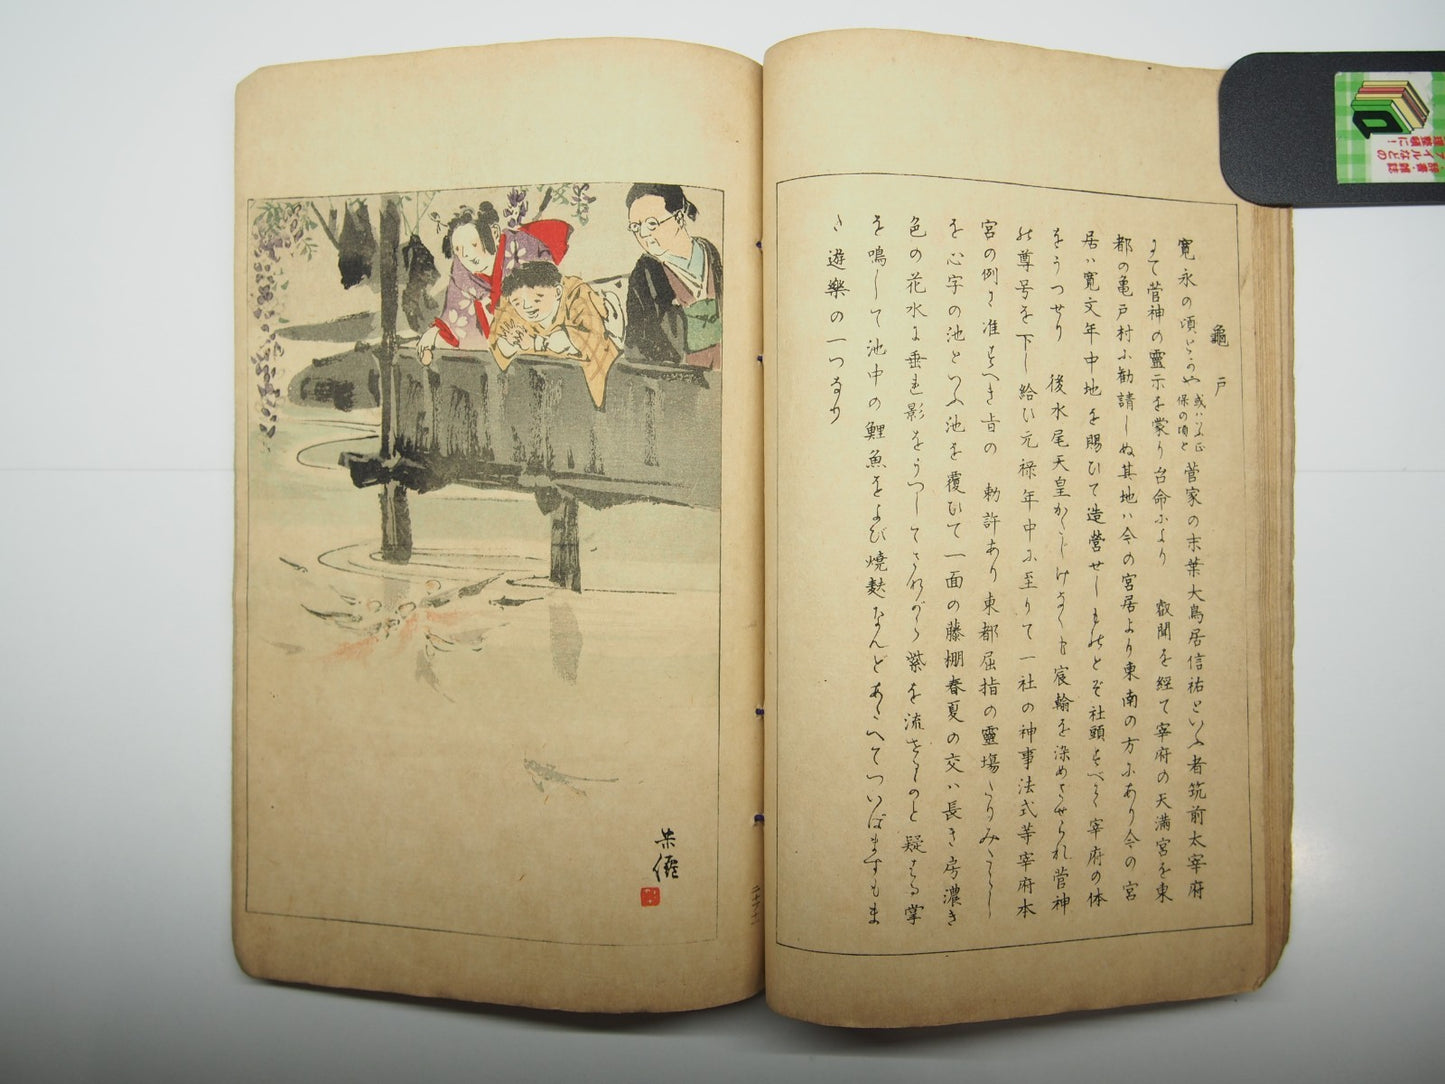 龜戸
寛永の頃とかや或ハ天正保の頃と菅家の末葉大鳥居信祐といふ者筑前太宰府
にて菅神の靈示を蒙り台命により 叡聞を経て宰府の天満宮を東
都の亀戸村に勧請しぬ其地ハ今の宮居より東南の方にあり今の宮
居ハ寛文年中地を賜ひて造營せしものとぞ社頭すべて宰府の体
をうつせり 後水尾天皇かしけなくも宸翰を染めさせられ菅神
の尊号を下し給ひ元禄年中に至りて一社の神事法式等宰府本
宮の例に准すへき旨の 勅許あり東都屈指の靈場たりみ
を心字の池といふ池を覆ひて一面の藤棚春夏の交ハ長き房濃き
色の花水に垂れ影をうつしてさながら紫を流せるものと疑はる掌
を鳴して池中の鯉魚をよび焼麩なんどあたへてついばますもま
た遊樂の一つなり
二十二